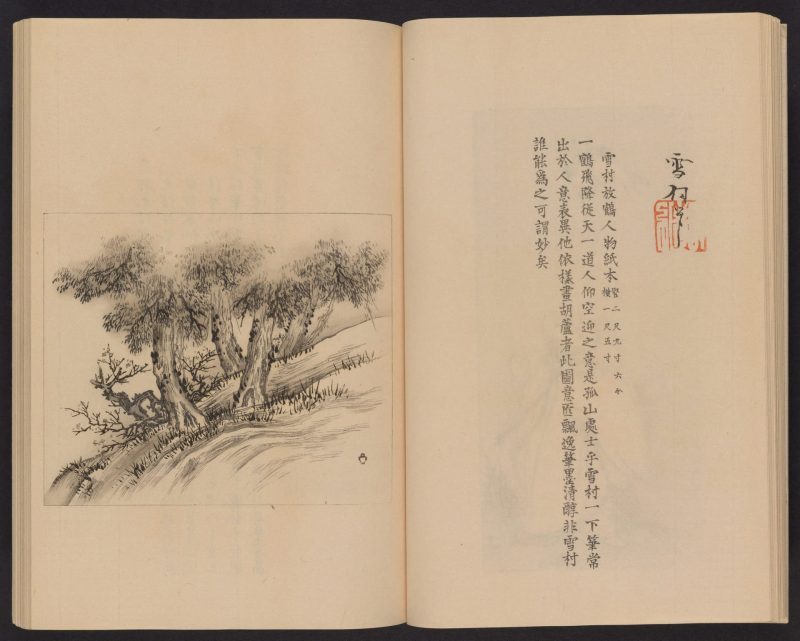 雪村筆
雪村放鶴人物紙本 竪二尺九寸六分 横一尺五寸
一鶴飛降従天一道人仰空迎之意是孤山處士乎雪村一下筆常
出於人意表異他依樣畫胡蘆者此圖意匠飄逸筆墨清醇非雪村
誰能為之可謂妙矣